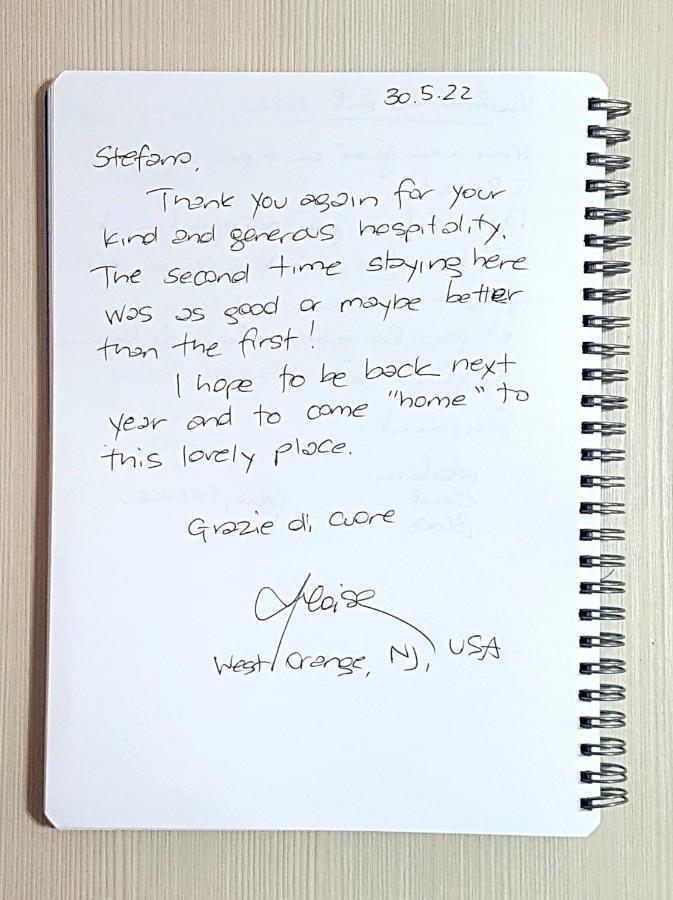 30.5.22
Stefano,
Thank you again for your
kind and generous hospitality.
The second time staying here
was as good or maybe better
than the first!
I hope to be back next
year and to come "home" to
this lovely place.
Grazie di cuore
West Orange, NJ, USA